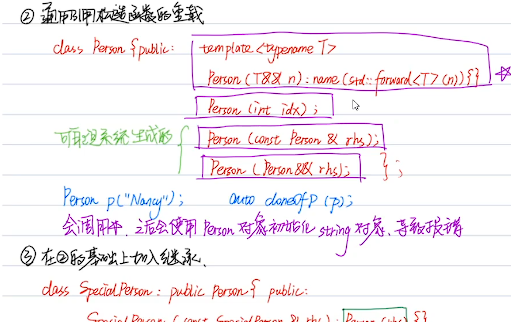 ② 通用引用构造函数的重载
class Person { public: template <typename T>
Person (T&& n) : name (std::forward<T>(n)) {}
Person (int idx);
可能是系统生成的 { Person (const Person & rhs);
Person (Person && rhs); };
Person p("Nancy"); auto cloneOfP (p);
会调用本☆, 之后会使用 Person 对象初始化 string 对象、导致报错
③ 在②的基础上加入继承.
class SpecialPerson : public Person { public:
SpecialPerson (const SpecialPerson & rhs) : Person (rhs) {}